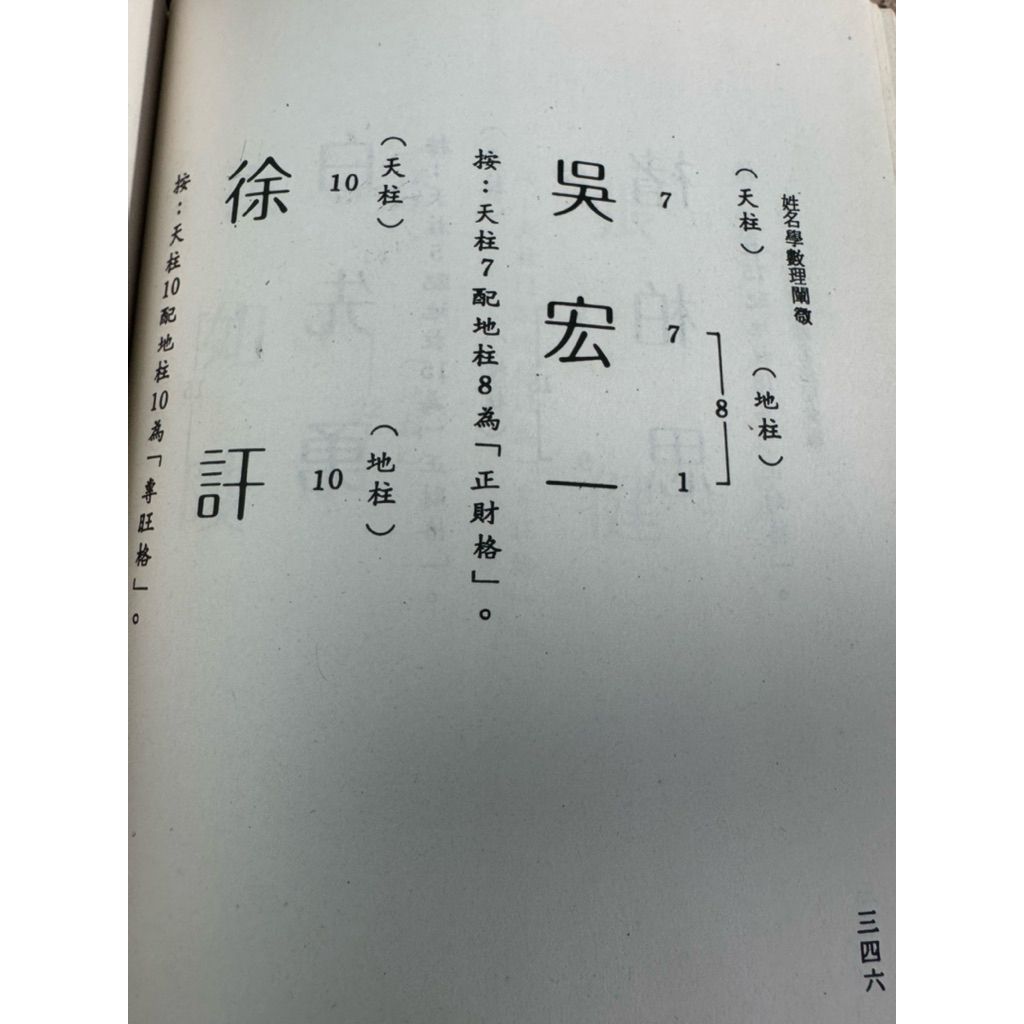 姓名學數理闡微
(天柱)
(地柱)
吳 7
宏 7
一 1
8
按：天柱7配地柱8為「正財格」。
(天柱)
(地柱)
徐 10
訐 10
按：天柱10配地柱10為「專旺格」。
三四六